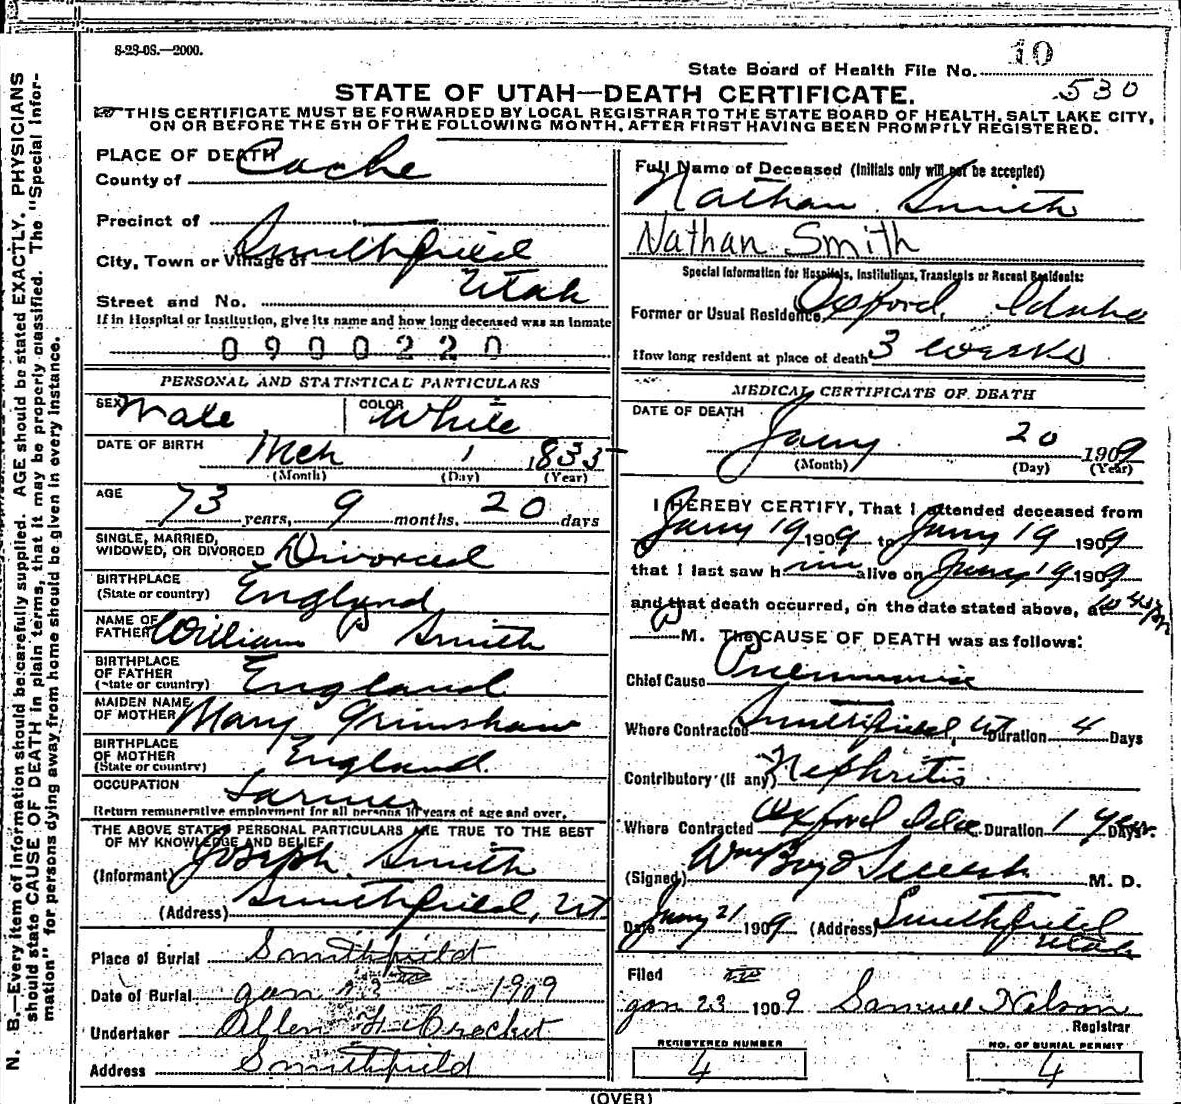 8-23-08.—2000.
10
State Board of Health File No.
530
STATE OF UTAH—DEATH CERTIFICATE.
THIS CERTIFICATE MUST BE FORWARDED BY LOCAL REGISTRAR TO THE STATE BOARD OF HEALTH, SALT LAKE CITY,
ON OR BEFORE THE 5TH OF THE FOLLOWING MONTH, AFTER FIRST HAVING BEEN PROMPTLY REGISTERED.
PLACE OF DEATH
County of Cache
Precinct of
City, Town or Village of Smithfield
Utah
Street and No.
If in Hospital or Institution, give its name and how long deceased was an inmate
0900220
PERSONAL AND STATISTICAL PARTICULARS
SEX Male COLOR White
DATE OF BIRTH Mch 1 1833
(Month) (Day) (Year)
AGE 73 years, 9 months. 20 days
SINGLE, MARRIED,
WIDOWED, OR DIVORCED Divorced
BIRTHPLACE
(State or country) England
NAME OF
FATHER William Smith
BIRTHPLACE
OF FATHER
(State or country) England
MAIDEN NAME
OF MOTHER Mary Grimshaw
BIRTHPLACE
OF MOTHER
(State or country) England.
OCCUPATION Farmer
Return remunerative employment for all persons 10 years of age and over.
THE ABOVE STATED PERSONAL PARTICULARS ARE TRUE TO THE BEST
OF MY KNOWLEDGE AND BELIEF
(Informant) Joseph Smith
(Address) Smithfield, Ut
Place of Burial Smithfield
Date of Burial Jan 23 1909
Undertaker Allen Crocket
Address Smithfield
Full Name of Deceased (Initials only will not be accepted)
Nathan Smith
Nathan Smith
Special Information for Hospitals, Institutions, Transients or Recent Residents:
Former or Usual Residence Oxford, Idaho
How long resident at place of death 3 weeks
MEDICAL CERTIFICATE OF DEATH
DATE OF DEATH
Jany 20 1909
(Month) (Day) (Year)
I HEREBY CERTIFY, That I attended deceased from
Jany 19 1909 to Jany 19 1909
that I last saw him alive on Jany 19 1909
and that death occurred, on the date stated above, at
M. The CAUSE OF DEATH was as follows:
Chief Cause Pneumonia
Where Contracted Smithfield, Ut Duration 4 Days
Contributory (If any) Nephritis
Where Contracted Oxford Idaho Duration 1 Year Days.
(Signed) Wm Boyd M. D.
Date Jany 21 1909 (Address) Smithfield
Utah
Filed
Jan 23 1909 Samuel Nelson
Registrar
REGISTERED NUMBER
4
NO. OF BURIAL PERMIT
4
(OVER)
N. B.—Every item of information should be carefully supplied. AGE should be stated EXACTLY. PHYSICIANS
should state CAUSE OF DEATH in plain terms, that it may be properly classified. The "Special Infor-
mation" for persons dying away from home should be given in every instance.